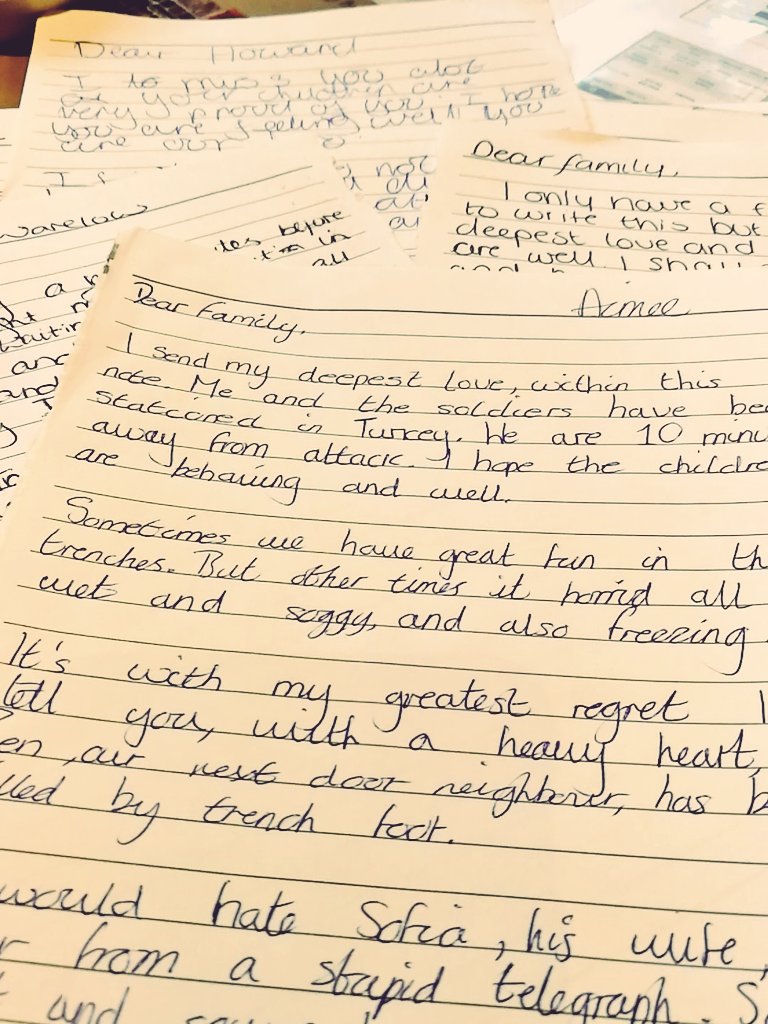 Dear Howard
I to miss you alot
at your children are
very proud of you. I hope
you are feeling well! you
are our
not
Dear family,
I only have a f
to write this but
deepest love and
are well. I shall
warelow
before
in
all
and
and
Aimee
Dear family,
I send my deepest love, within this
note. Me and the soldiers have bee
stationed in Turkey. We are 10 minu
away from attack. I hope the childre
are behaving and well.
Sometimes we have great fun in th
trenches. But other times it horrid all
wet and soggy, and also freezing
It's with my greatest regret I
tell you, with a heavy heart,
en, our next door neighbour, has b
lled by trench foot.
would hate Sofia, his wife,
r from a stupid telegraph. S
and